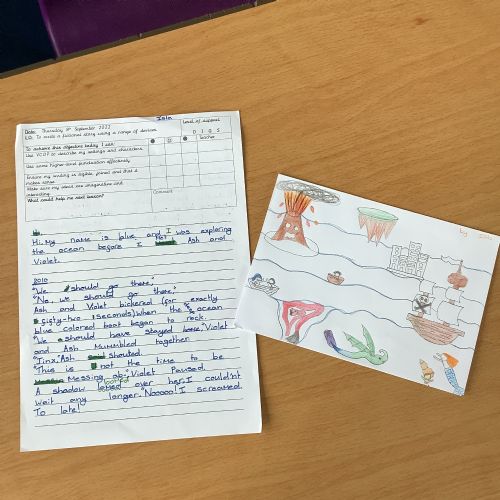 Isla
Date: Thursday 8th September 2022
LO: To write a fictional story using a range of devices.
Level of support
D I G S
To achieve this objective today I can:
Teacher
Use VCOP to describe my settings and characters.
Use some higher-end punctuation effectively
Ensure my writing is legible, joined and that it makes sense.
Make sure my ideas are imaginative and interesting.
What could help me next lesson?
Comment
Hi, my name is blue, and I was exploring
the ocean before I Ash and
Violet.
"We should go there,"
"No, we should go there,"
Ash and Violet bickered (for exactly
fifty-two seconds) when the ocean
blue colored boat began to rock.
"We should have stayed home," Violet
and Ash Mumbled together
"Jinx," Ash shouted.
"This is not the time to be
Messing ab-" Violet Paused.
A shadow loomed over her, I couldn't
wait any longer. "Nooooo! I screamed.
To late!
by